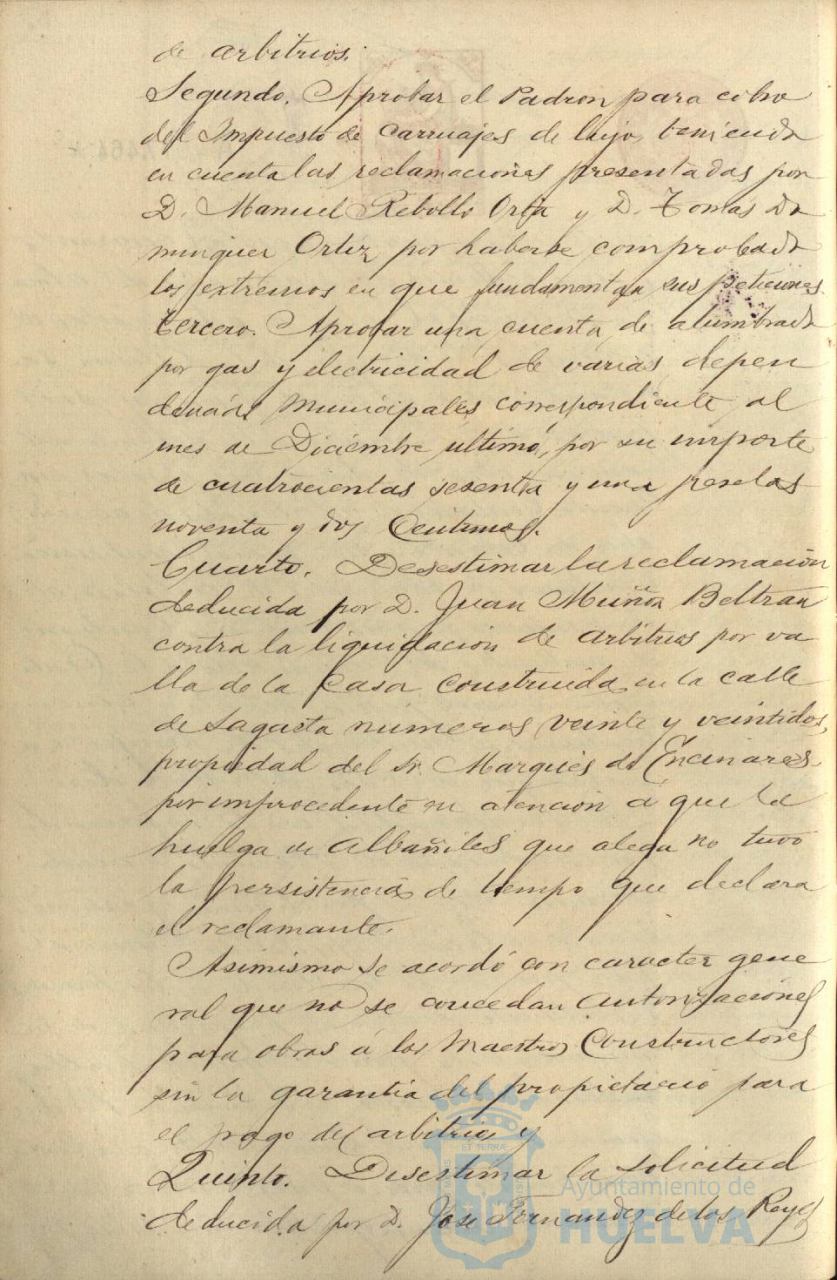 de arbitrios.
Segundo. Aprobar el Padron para cobro
del Impuesto de Carruajes de lujo, teniendo
en cuenta las reclamaciones presentadas por
D. Manuel Rebollo Orta y D. Tomas Do
minguez Ortiz por haberse comprobado
los extremos en que fundamentan sus peticiones.
Tercero. Aprobar una cuenta de alumbrado
por gas y electricidad de varias depen
dencias Municipales correspondiente al
mes de Diciembre ultimo, por su importe
de cuatrocientas sesenta y una pesetas
noventa y dos Centimos.
Cuarto. Desestimar la reclamación
deducida por D. Juan Muñoz Beltrán
contra la liquidación de arbitrios por va
lla de la Casa construida en la calle
de Sagasta números veinte y veintidos,
propiedad del Sr. Marqués de Encinares
por improcedente en atención á que la
huelga de Albañiles que alega no tuvo
la persistencia de tiempo que declara
el reclamante.
Asimismo se acordó con caracter gene
ral que no se concedan autorizaciones
para obras á los Maestros Constructores
sin la garantia del propietario para
el pago de arbitrios y
Quinto. Desestimar la solicitud
deducida por D. José Fernandez de los Reyes
Ayuntamiento de
HUELVA